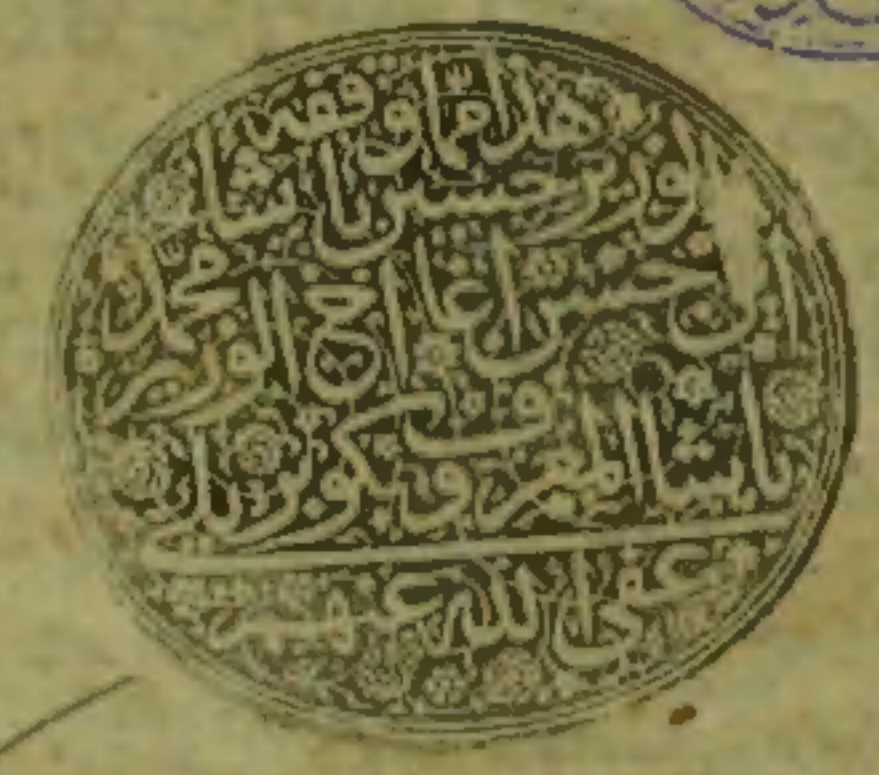 هذا ممّا وقفه
الوزير حسين باشا
ابن حسن اغا اخ الوزير محمّد
باشا المعروف بكوپريلى
عفى الله عنهم